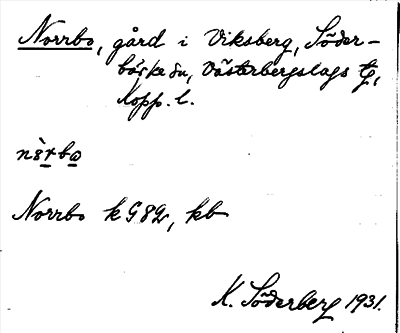 Norrbo, gård i Viksberg, Söder-
bärke sn, Västerbergslags tg,
Kopp. l.
nòrbo
Norrbo k G 82, kb
K. Söderberg 1931.